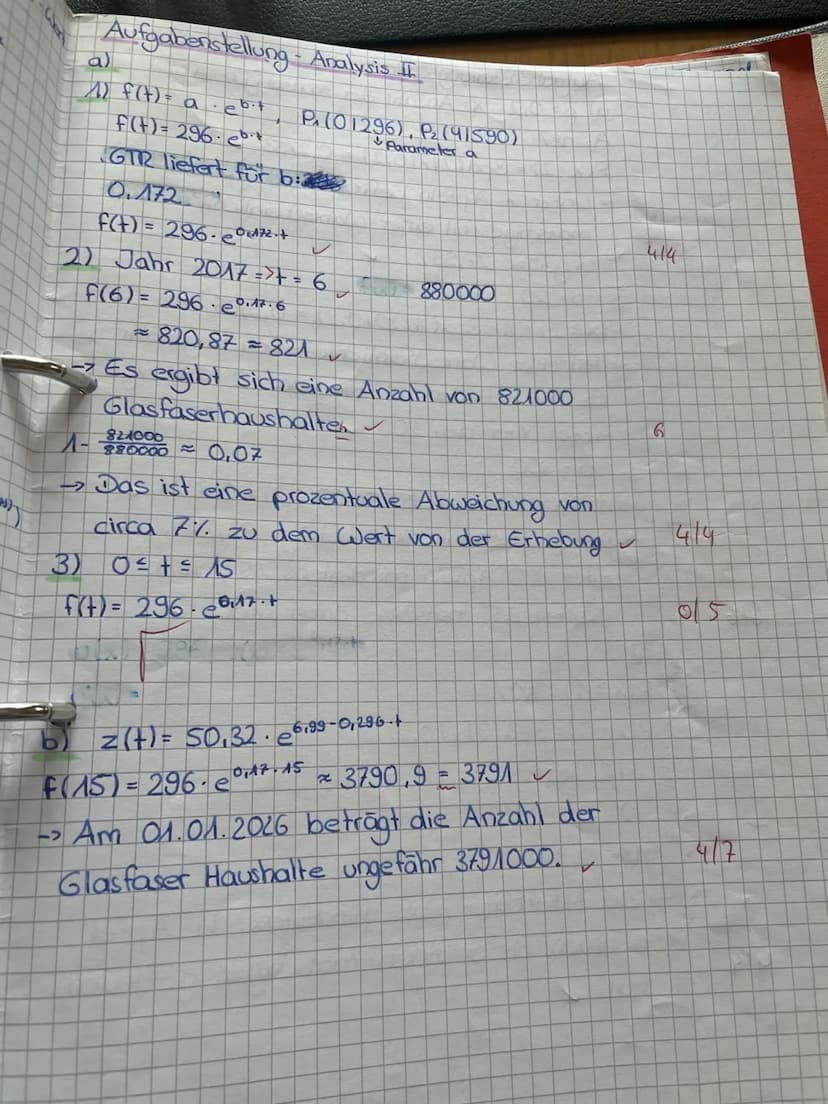 Aufgabenstellung - Analysis II
a)
1) f(t) = a · e^b·t, P₁(0|296), P₂(4|590)
↓ Parameter a
f(t) = 296 · e^b·t
GTR liefert für b:
0,172
f(t) = 296 · e^0,172·t ✓
4/4
2) Jahr 2017 => t = 6 ✓ 880000
f(6) = 296 · e^0,17·6
≈ 820,87 ≈ 821 ✓
-> Es ergibt sich eine Anzahl von 821000
Glasfaserhaushalten ✓
6
1 - 821000/880000 ≈ 0,07
-> Das ist eine prozentuale Abweichung von
circa 7% zu dem Wert von der Erhebung ✓ 4/4
3) 0 ≤ t ≤ 15
f(t) = 296 · e^0,17·t
0/5
b) z(t) = 50,32 · e^6,99-0,296·t
f(15) = 296 · e^0,17·15 ≈ 3790,9 = 3791 ✓
-> Am 01.01.2026 beträgt die Anzahl der
Glasfaser Haushalte ungefähr 3791000. ✓ 4/7